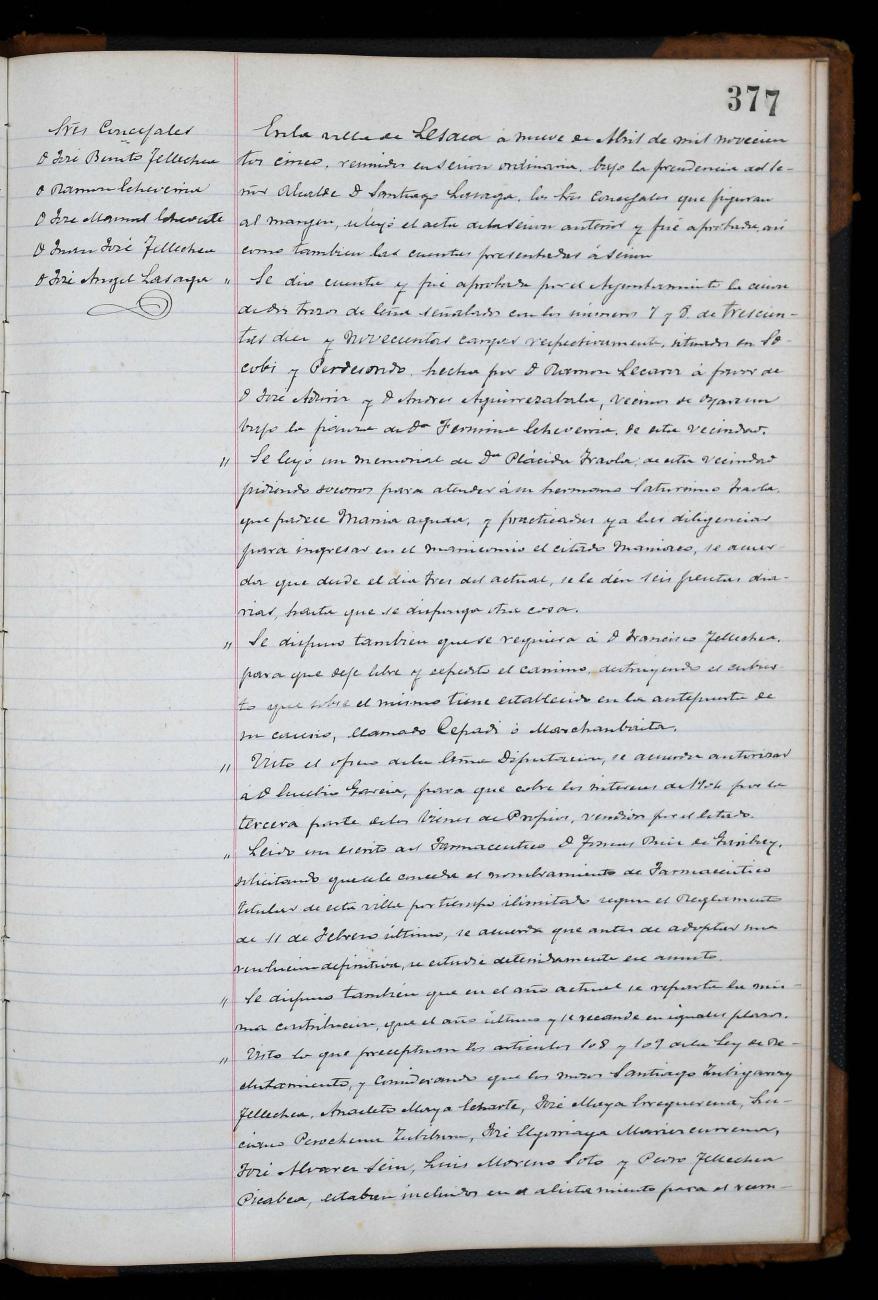 377
Sres Concejales
D José Benito Tellechea
D Ramon Echeverria
D José Manuel Echeveste
D Juan José Tellechea
D José Angel Lasarga
En la villa de Lesaca á nueve de Abril de mil novecien
tos cinco, reunidos en sesion ordinaria, bajo la presidencia del Se-
ñor Alcalde D Santiago Lasarga, los Sres Concejales que figuran
al margen, se leyó el acta de la sesion anterior y fué aprobada, asi
como tambien las cuentas presentadas á sesion
" Se dió cuenta y fué aprobada por el Ayuntamiento la cesion
de dos trozos de leña señalados con los números 7 y 8, de trescien-
tas diez y novecientas cargas respectivamente, situados en
y hecha por D Ramon Lecaroz á favor de
D José y D Andres Aguirrezabala, vecinos de Oyarzun
bajo la fianza de Dª Fermina Echeverria, de esta vecindad.
" Se leyó un memorial de Dª Plácida Iraola, de esta vecindad
pidiendo socorros para atender á su hermano Saturnino Iraola,
que padece Mania aguda, y practicadas ya las diligencias
para ingresar en el manicomio el citado Maniaco, se acuer-
da que desde el dia tres del actual, se le dén seis pesetas dia-
rias, hasta que se disponga otra cosa.
" Se dispuso tambien que se requiera á D Francisco Tellechea,
para que deje libre y espedito el camino, destruyendo el cubier-
to que sobre el mismo tiene establecido en la antepuerta de
su caserio, llamado ó Marchanbaita.
" Visto el oficio de la Excma Diputacion, se acuerda autorizar
á D Eusebio Garcia, para que cobre los intereses de 1904 por la
tercera parte de los bienes de Propios, vendidos por el Estado.
" Leido un escrito del Farmaceutico D Tomas Ruiz de Garibay,
solicitando que se le conceda el nombramiento de Farmaceutico
titular de esta villa por tiempo ilimitado segun el Reglamento
de 11 de Febrero último, se acuerda que antes de adoptar una
resolucion definitiva, se estudie detenidamente ese asunto.
" Se dispuso tambien que en el año actual se reparta la mis-
ma contribucion, que el año último y se recaude en iguales plazos.
" Visto lo que preceptuan los articulos 108 y 109 de la Ley de Re-
clutamiento, y Considerando que los mozos Santiago Zubigaray
Tellechea, Anacleto Maya Echarte, José Maya Irrequerena, Lu-
ciano Perochena Zubiburu, José Elgorriaga Mariezcurrena,
José Alvarez Sein, Luis Moreno Soto y Pedro Tellechea
Picabea, estaban incluidos en el alistamiento para el reem-